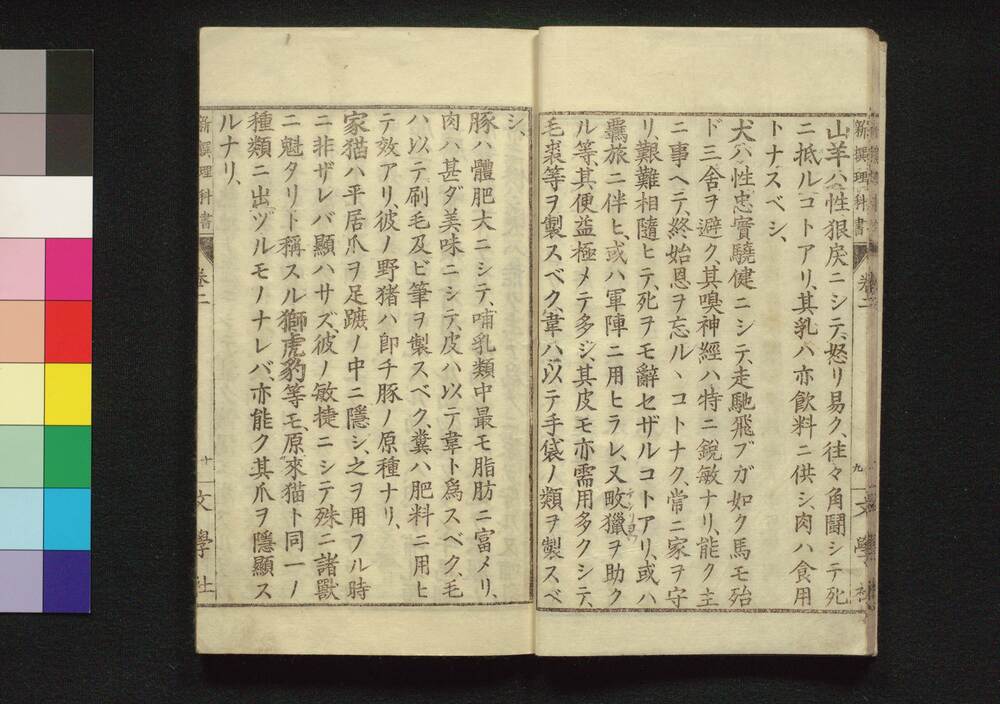 新撰理科書 卷二 九 文學社
山羊ハ性狠戾ニシテ、怒リ易ク、往々角鬪シテ死
ニ抵ルコトアリ、其乳ハ亦飲料ニ供シ、肉ハ食用
トナスベシ、
犬ハ性忠實驍健ニシテ、走馳飛ブガ如ク馬モ殆
ド三舍ヲ避ク、其嗅神經ハ特ニ銳敏ナリ、能ク主
ニ事ヘテ、終始恩ヲ忘ルヽコトナク、常ニ家ヲ守
リ、艱難相隨ヒテ、死ヲモ辭セザルコトアリ、或ハ
羈旅ニ伴ヒ、或ハ軍陣ニ用ヒラレ、又畋獵ヲ助ク
ル等、其便益極メテ多シ、其皮モ亦需用多クシテ、
毛裘等ヲ製スベク、韋ハ以テ手袋ノ類ヲ製スベ
シ、
豚ハ體肥大ニシテ、哺乳類中最モ脂肪ニ富メリ、
肉ハ甚ダ美味ニシテ、皮ハ以テ韋ト爲スベク、毛
ハ以テ刷毛及ビ筆ヲ製スベク、糞ハ肥料ニ用ヒ
テ效アリ、彼ノ野猪ハ卽チ豚ノ原種ナリ、
家猫ハ平居爪ヲ足蹠ノ中ニ隱シ、之ヲ用フル時
ニ非ザレバ顯ハサズ、彼ノ敏捷ニシテ殊ニ諸獸
ニ魁タリト稱スル獅虎豹等モ、原來猫ト同一ノ
種類ニ出ヅルモノナレバ、亦能ク其爪ヲ隱顯ス
ルナリ、
新撰理科書 卷二 十 文學社